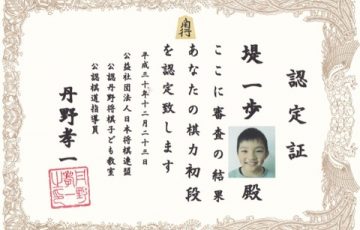 認定証
堤一歩殿
ここに審査の結果
あなたの棋力初段
を認定致します
平成三十年十二月二十三日
公益社団法人日本将棋連盟
公認丹野将棋子ども教室
公認棋道指導員
丹野孝一